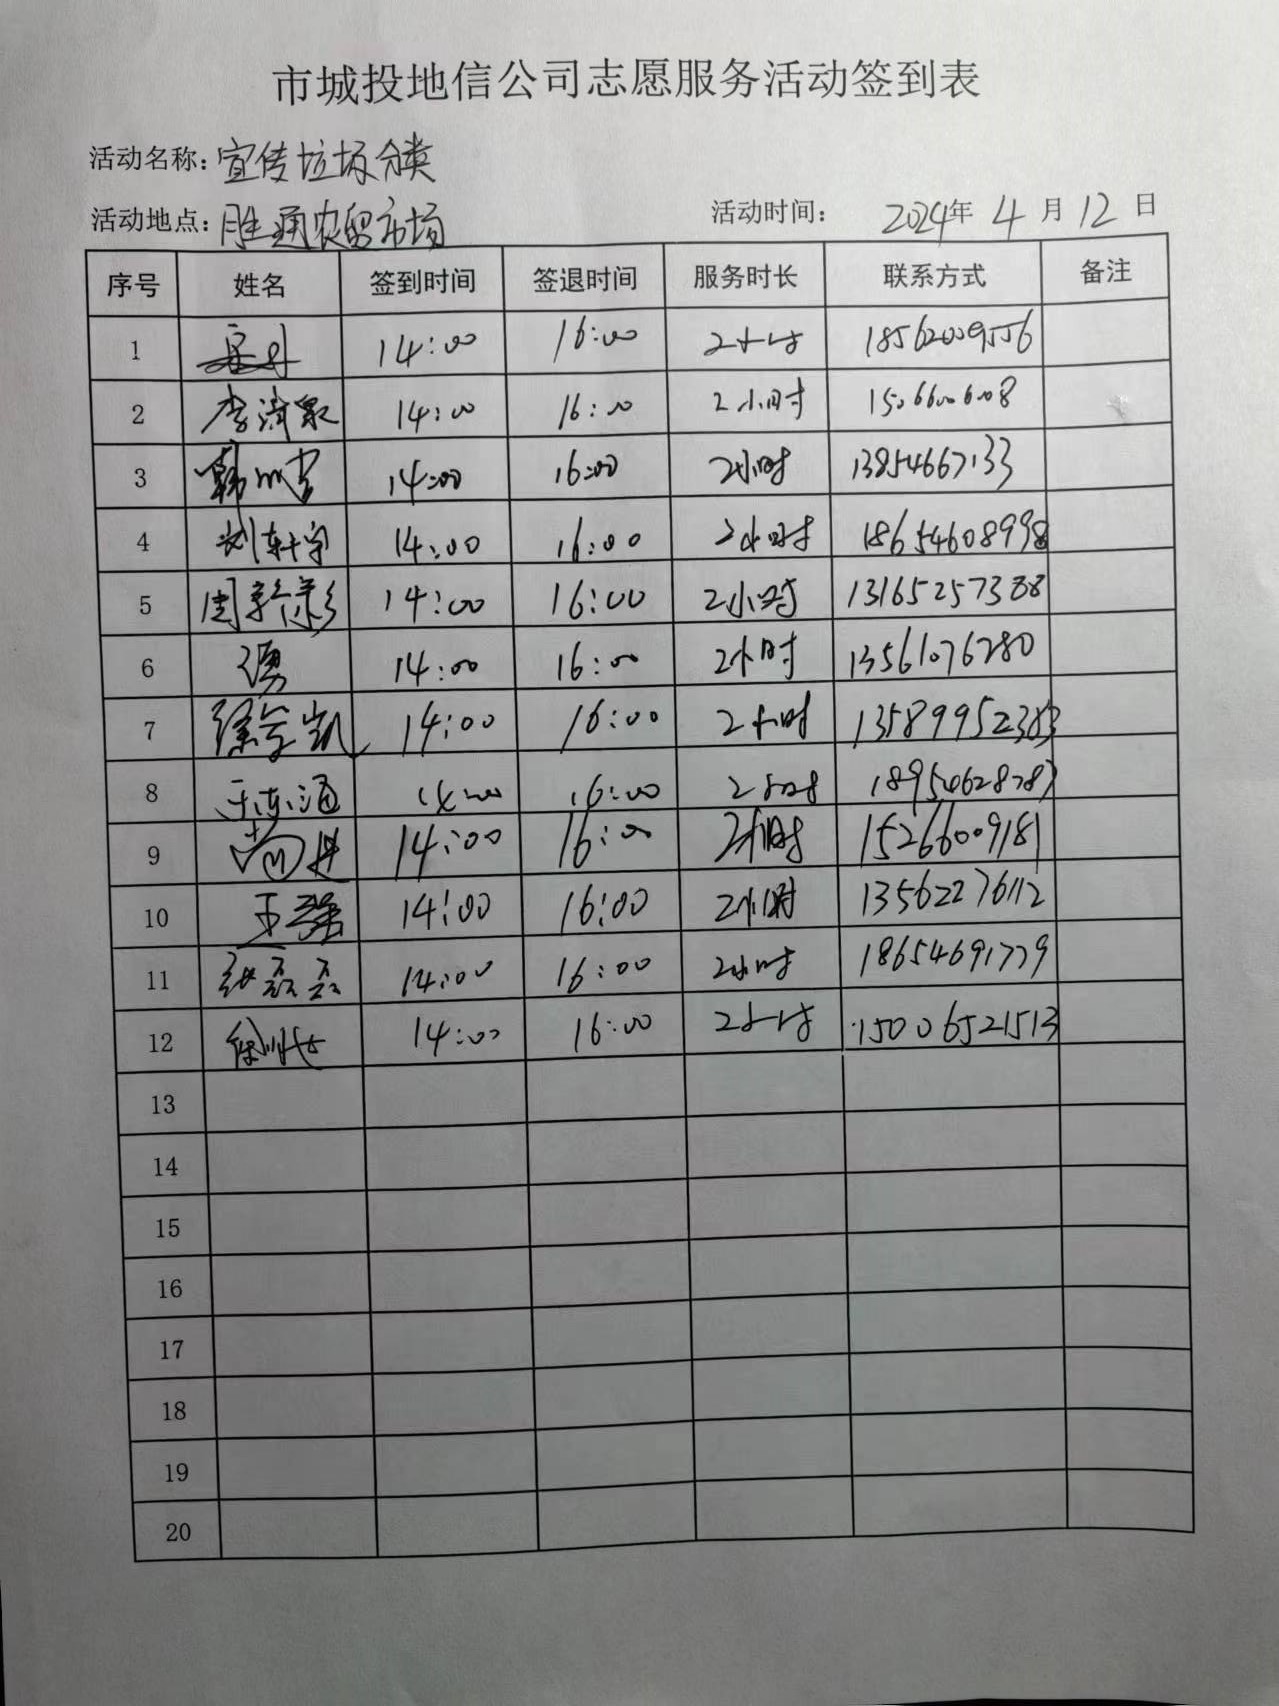 市城投地信公司志愿服务活动签到表
活动名称：宣传垃圾分类
活动地点：胜通农贸市场 活动时间： 2024年 4月12日
序号 姓名 签到时间 签退时间 服务时长 联系方式 备注
1 14:00 16:00 2小时 18562009556
2 李清泉 14:00 16:00 2小时 15066006008
3 14:00 16:00 2小时 13854667133
4 刘轩宇 14:00 16:00 2小时 18654608998
5 14:00 16:00 2小时 13165257388
6 14:00 16:00 2小时 13561076280
7 徐会凯 14:00 16:00 2小时
8 14:00 16:00 2小时
9 尚进 14:00 16:00 2小时 15266009181
10 王强 14:00 16:00 2小时 13562276112
11 张磊磊 14:00 16:00 2小时 18654691779
12 14:00 16:00 2小时 15006521513
13
14
15
16
17
18
19
20